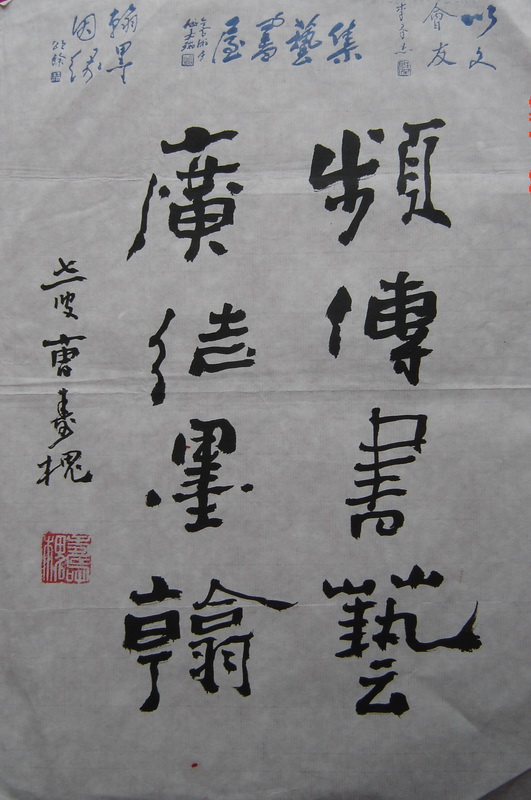 以文
會友
集藝書屋
翰墨
因緣
頻傳書藝
廣結墨翰
曹壽槐